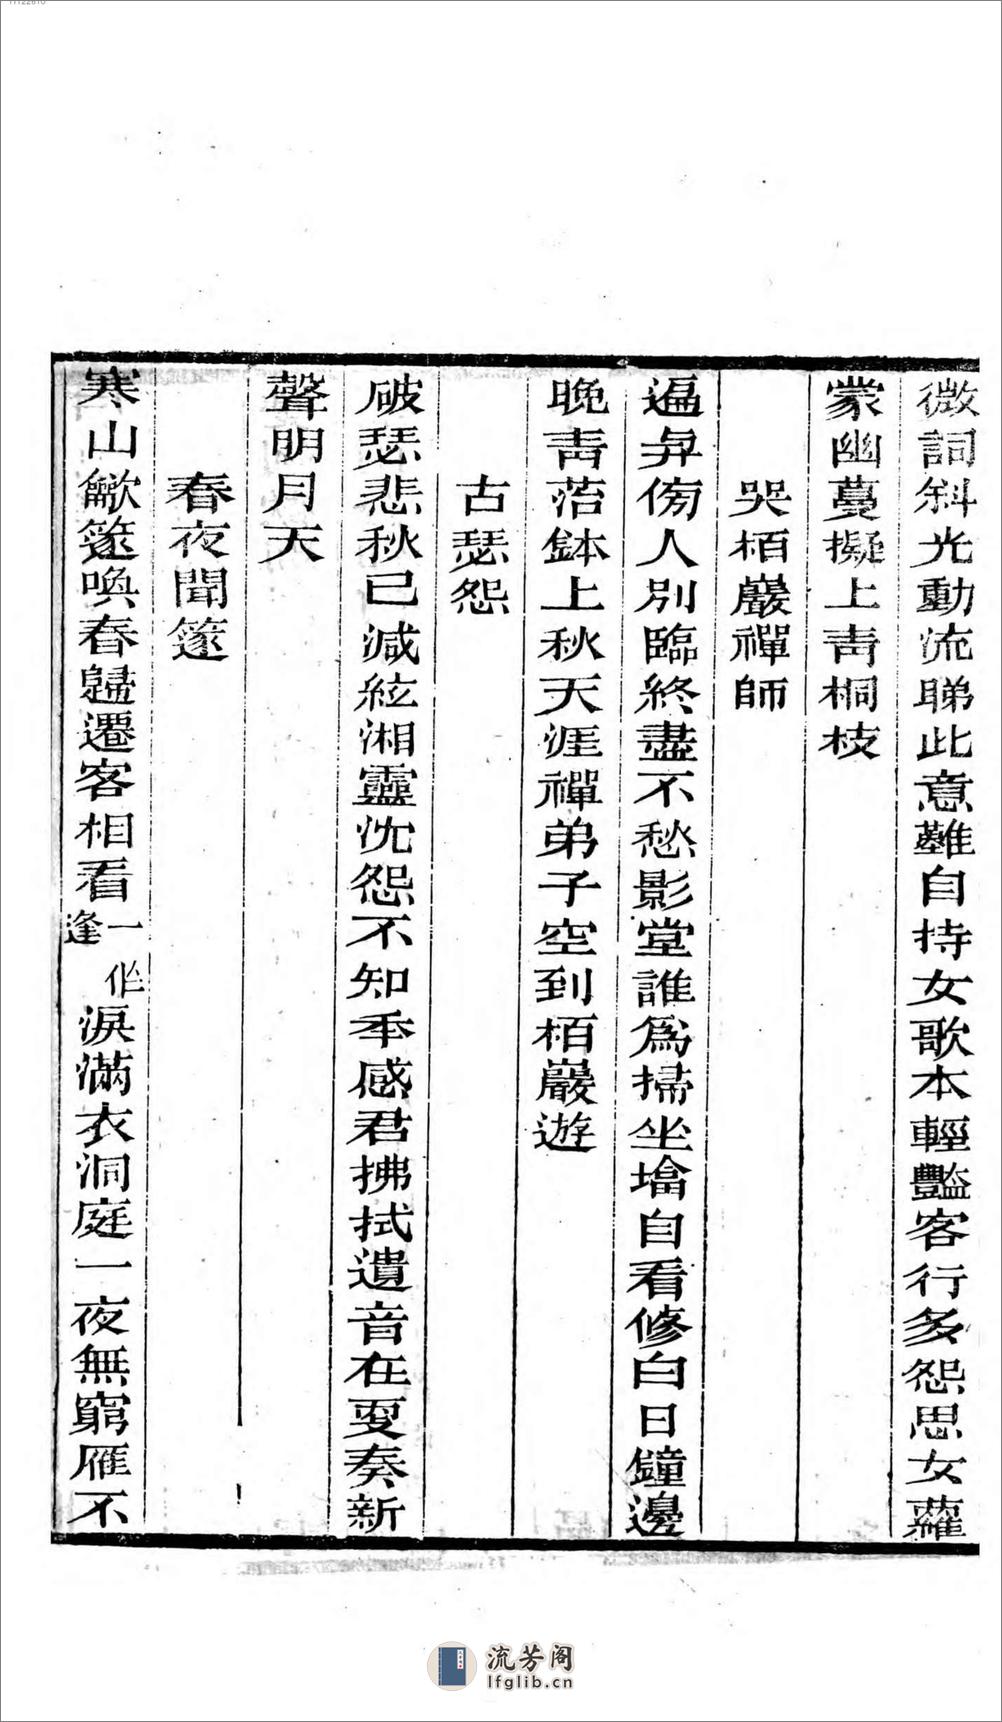 微詞斜光動流睇此意難自持女歌本輕艷客行多怨思女蘿
蒙幽蔓擬上青桐枝
哭栢巖禪師
遍與傍人別臨終盡不愁影堂誰爲掃坐墖自看修白日鐘邊
晚青苔鉢上秋天涯禪弟子空到栢巖遊
古瑟怨
破瑟悲秋已減絃湘靈沈怨不知秊感君拂拭遺音在更奏新
聲明月天
春夜聞篴
寒山龡篴喚春歸遷客相看一作逢淚滿衣洞庭一夜無窮雁不
流芳阁
lfglib.cn